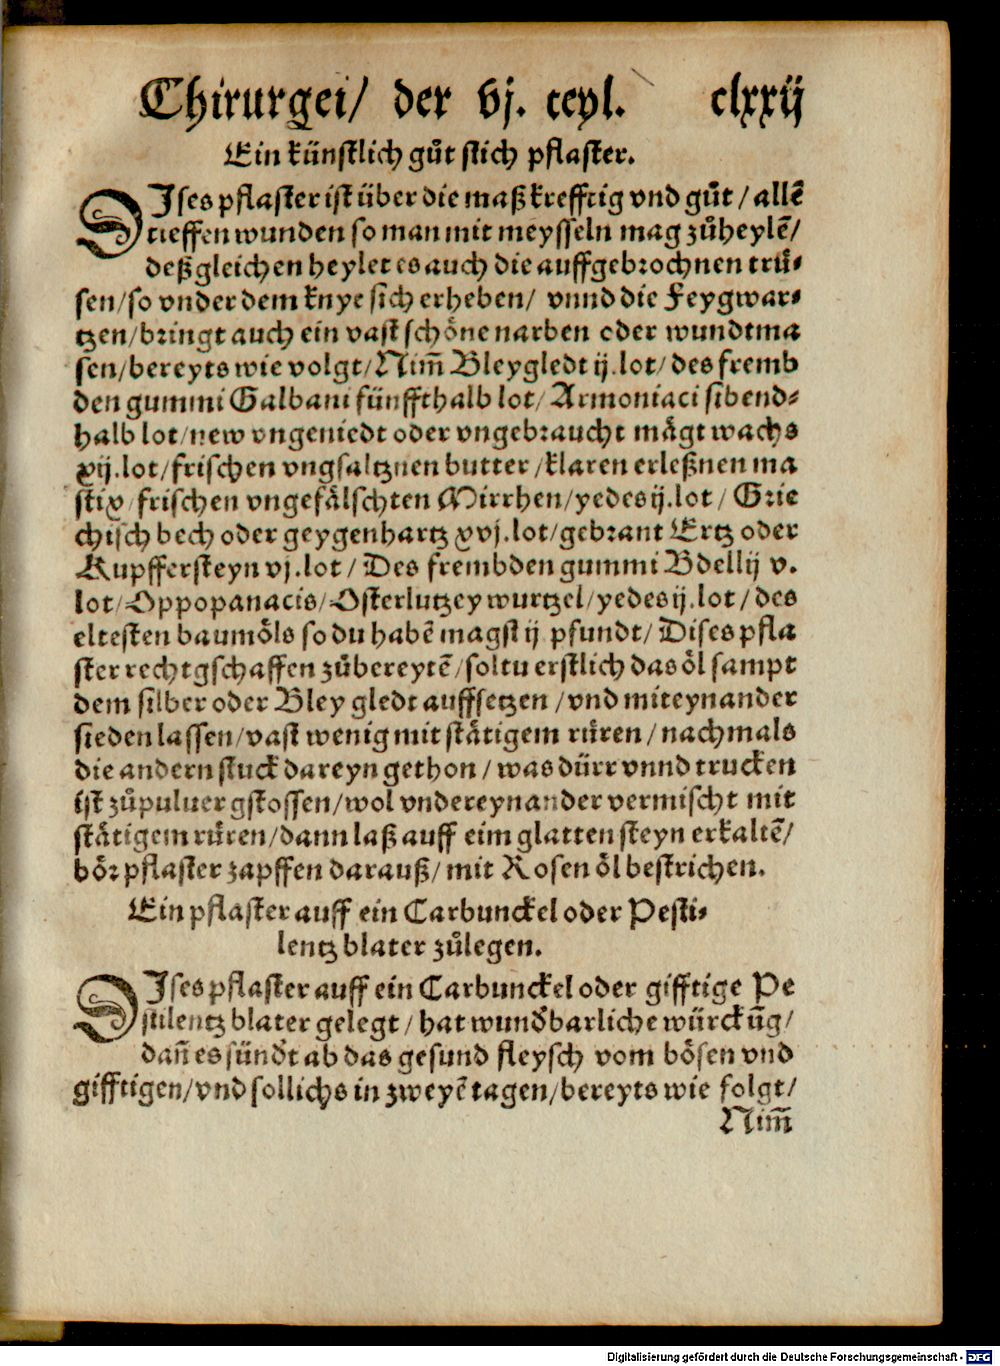 Chirurgei/ der vj. teyl. clxxij
Ein künstlich gůt stich pflaster.
DIses pflaster ist über die maß krefftig vnd gůt / allẽ
tieffen wunden so man mit meysseln mag zůheylẽ/
deßgleichen heylet es auch die auffgebrochnen trů-
sen/so vnder dem knye sich erheben/ vnnd die Feygwar-
tzen/bringt auch ein vast schöne narben oder wundtma
sen/bereyts wie volgt/Nim̃ Bleygledt ij.lot/des fremb
den gummi Galbani fünffthalb lot/Armoniaci sibend-
halb lot/new vngeniedt oder vngebraucht mägt wachs
xij.lot/frischen vngsaltznen butter/klaren erleßnen ma
stix/frischen vngefälschten Mirrhen/yedes ij.lot/ Grie
chisch bech oder geygenhartz xvj.lot/gebrant Ertz oder
Kupffersteyn vj.lot/ Des frembden gummi Bdellij v.
lot/Oppopanacis/Osterlutzey wurtzel/yedes ij.lot/des
eltesten baumöls so du habẽ magst ij pfundt/Dises pfla
ster rechtgschaffen zůbereytẽ/soltu erstlich das öl sampt
dem silber oder Bley gledt auffsetzen/vnd miteynander
sieden lassen/vast wenig mit stätigem rüren/nachmals
die andern stuck dareyn gethon/was dürr vnnd trucken
ist zůpuluer gstossen/wol vndereynander vermischt mit
stätigem rüren/dann laß auff eim glatten steyn erkaltẽ/
bör pflaster zapffen darauß/mit Rosen öl bestrichen.
Ein pflaster auff ein Carbunckel oder Pesti-
lentz blater zůlegen.
DIses pflaster auff ein Carbunckel oder gifftige Pe
stilentz blater gelegt/hat wund̓barliche würckũg/
dañ es sünd̓t ab das gesund fleysch vom bösen vnd
gifftigen/vnd sollichs in zweyẽ tagen/bereyts wie folgt/
Nim̃
Digitalisierung gefördert durch die Deutsche Forschungsgemeinschaft - DFG